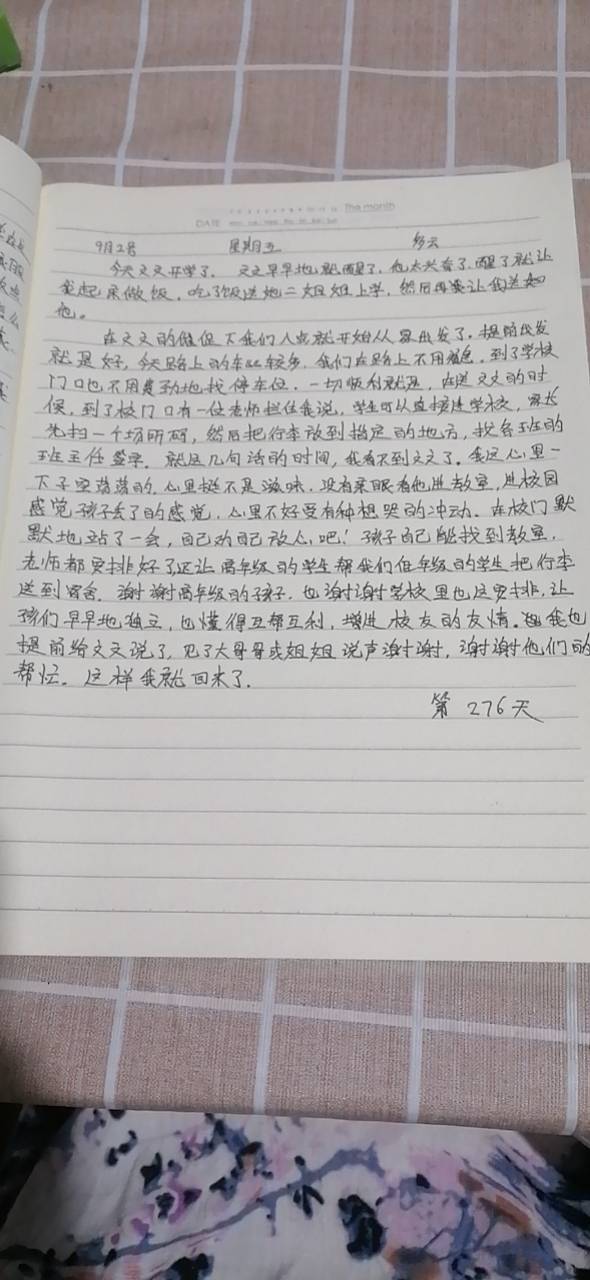 the month
DATE
9月2号 星期五 多云
今天文文开学了。文文早早地就醒了,他太兴奋了,醒了就让
我起来做饭,吃了饭送她二姐姐上学,然后再要让我送
他。
在文文的催促下我们人点就开始从家出发了,提前出发
就是好,今天路上的车比较多,我们在路上不用着急,到了学校
门口也不用费劲地找停车位,一切顺利就是,在送文文的时
候,到了校门口有一位老师拦住我说,学生可以直接进学校,家长
先扫一个场所码,然后把行李放到指定的地方,找各班的
班主任签字。就这几句话的时间,我看不到文文了。我这心里一
下子空荡荡的,心里挺不是滋味,没有亲眼看他进教室,进校园
感觉孩子丢了的感觉,心里不好受有种想哭的冲动。在校门默
默地站了一会,自己劝自己放心吧!孩子自己能找到教室,
老师都安排好了还让高年级的学生帮我们低年级的学生把行李
送到宿舍,谢谢高年级的孩子,也谢谢学校里也这安排,让
孩们早早地独立,也懂得互帮互利,增进校友的友情。我也
提前给文文说了,见了大哥哥或姐姐说声谢谢,谢谢他们的
帮忙。这样我就回来了.
第 276天